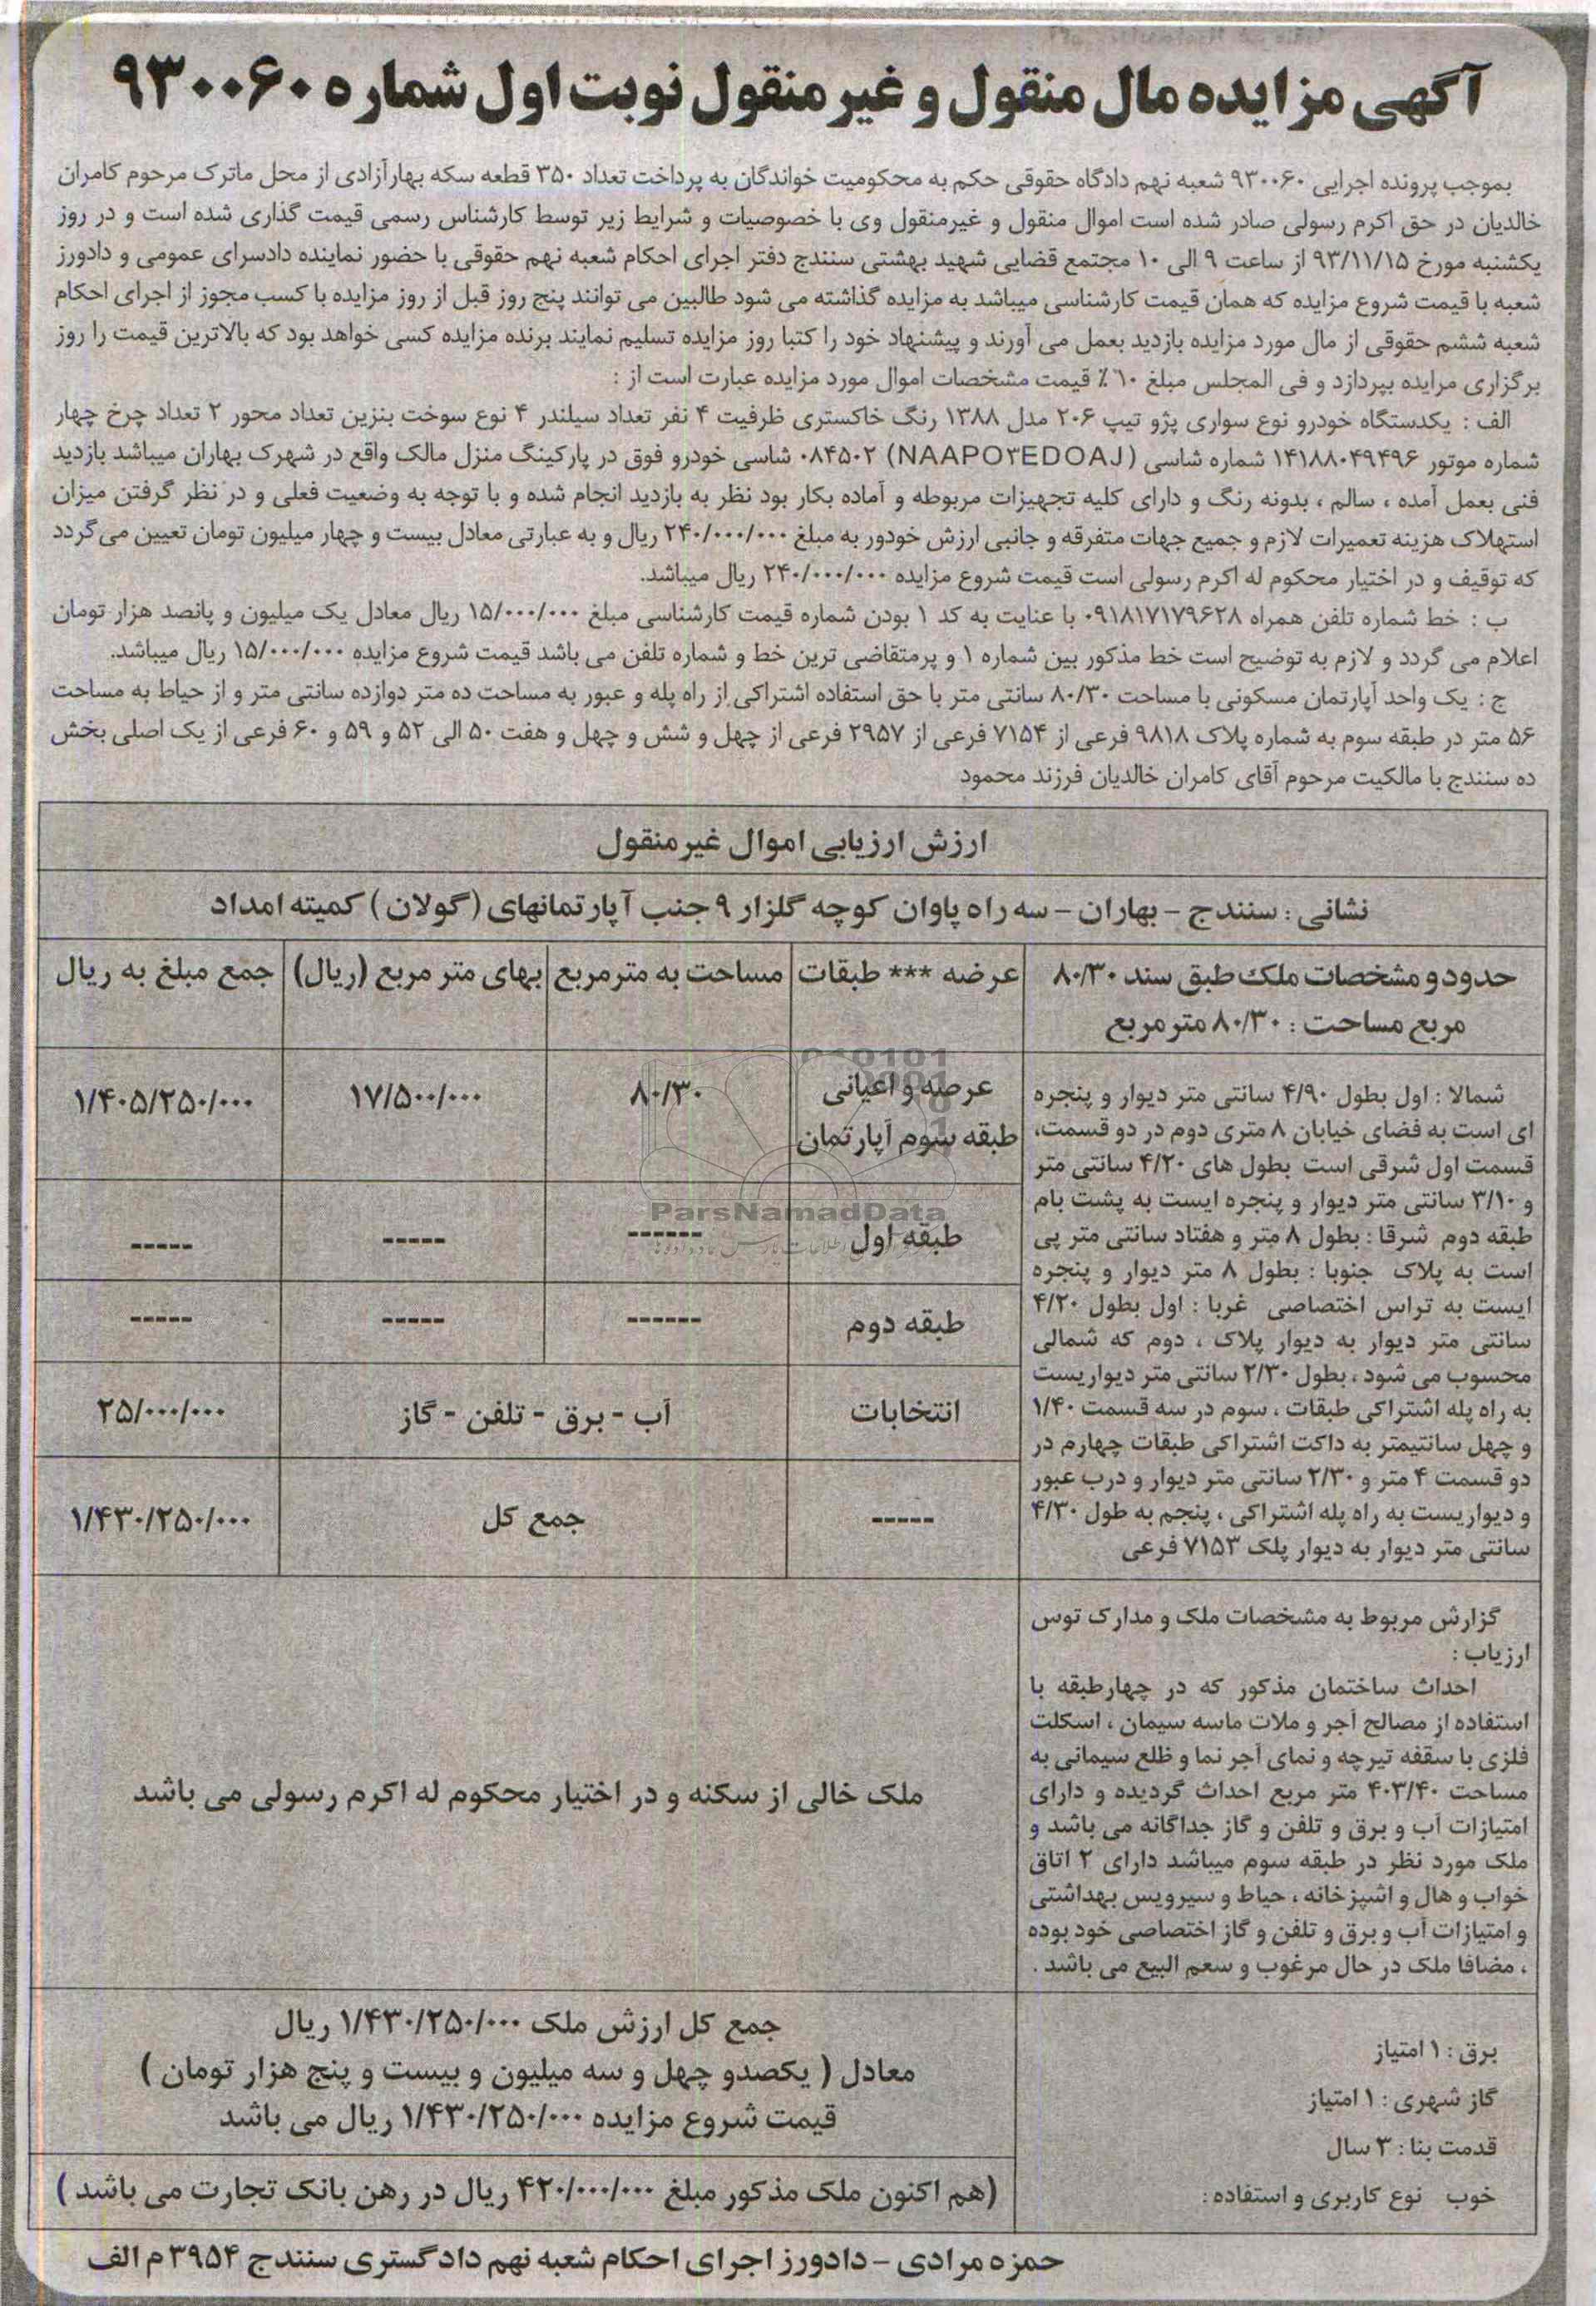 آگهی مزایده مال منقول و غیر منقول نوبت اول شماره ۹۳۰۰۶۰
بموجب پرونده اجرایی ۹۳۰۰۶۰ شعبه نهم دادگاه حقوقی حکم به محکومیت خواندگان به پرداخت تعداد ۳۵۰ قطعه سکه بهارآزادی از محل ماترک مرحوم کامران
خالدیان در حق اکرم رسولی صادر شده است اموال منقول و غیرمنقول وی با خصوصیات و شرایط زیر توسط کارشناس رسمی قیمت گذاری شده است و در روز
یکشنبه مورخ ۹۳/۱۱/۱۵ از ساعت ۹ الی ۱۰ مجتمع قضایی شهید بهشتی سنندج دفتر اجرای احکام شعبه نهم حقوقی با حضور نماینده دادسرای عمومی و دادورز
شعبه با قیمت شروع مزایده که همان قیمت کارشناسی میباشد به مزایده گذاشته می شود طالبین می توانند پنج روز قبل از روز مزایده با کسب مجوز از اجرای احکام
شعبه ششم حقوقی از مال مورد مزایده بازدید بعمل می آورند و پیشنهاد خود را کتبا روز مزایده تسلیم نمایند برنده مزایده کسی خواهد بود که بالاترین قیمت را روز
برگزاری مزایده بپردازد و فی المجلس مبلغ ۱۰٪ قیمت مشخصات اموال مورد مزایده عبارت است از :
الف : یکدستگاه خودرو نوع سواری پژو تیپ ۲۰۶ مدل ۱۳۸۸ رنگ خاکستری ظرفیت ۴ نفر تعداد سیلندر ۴ نوع سوخت بنزین تعداد محور ۲ تعداد چرخ چهار
شماره موتور ۱۴۱۸۸۰۴۹۴۹۶ شماره شاسی (NAAPO۳EDOAJ) ۰۸۴۵۰۲ شاسی خودرو فوق در پارکینگ منزل مالک واقع در شهرک بهاران میباشد بازدید
فنی بعمل آمده ، سالم ، بدونه رنگ و دارای کلیه تجهیزات مربوطه و آماده بکار بود نظر به بازدید انجام شده و با توجه به وضعیت فعلی و در نظر گرفتن میزان
استهلاک هزینه تعمیرات لازم و جمیع جهات متفرقه و جانبی ارزش خودور به مبلغ ۲۴۰/۰۰۰/۰۰۰ ریال و به عبارتی معادل بیست و چهار میلیون تومان تعیین می گردد
که توقیف و در اختیار محکوم له اکرم رسولی است قیمت شروع مزایده ۲۴۰/۰۰۰/۰۰۰ ریال میباشد.
ب : خط شماره تلفن همراه ۰۹۱۸۱۷۱۷۹۶۲۸ با عنایت به کد ۱ بودن شماره قیمت کارشناسی مبلغ ۱۵/۰۰۰/۰۰۰ ریال معادل یک میلیون و پانصد هزار تومان
اعلام می گردد و لازم به توضیح است خط مذکور بین شماره ۱ و پرمتقاضی ترین خط و شماره تلفن می باشد قیمت شروع مزایده ۱۵/۰۰۰/۰۰۰ ریال میباشد.
ج : یک واحد آپارتمان مسکونی با مساحت ۸۰/۳۰ سانتی متر با حق استفاده اشتراکی از راه پله و عبور به مساحت ده متر دوازده سانتی متر و از حیاط به مساحت
۵۶ متر در طبقه سوم به شماره پلاک ۹۸۱۸ فرعی از ۷۱۵۴ فرعی از ۲۹۵۷ فرعی از چهل و شش و چهل و هفت ۵۰ الی ۵۲ و ۵۹ و ۶۰ فرعی از یک اصلی بخش
ده سنندج با مالکیت مرحوم آقای کامران خالدیان فرزند محمود
ارزش ارزیابی اموال غیرمنقول
نشانی : سنندج - بهاران - سه راه پاوان کوچه گلزار ۹ جنب آپارتمانهای (گولان) کمیته امداد
حدود و مشخصات ملک طبق سند ۸۰/۳۰
مربع مساحت : ۸۰/۳۰ مترمربع
عرضه *** طبقات
مساحت به مترمربع
بهای متر مربع (ریال)
جمع مبلغ به ریال
شمالا : اول بطول ۴/۹۰ سانتی متر دیوار و پنجره
ای است به فضای خیابان ۸ متری دوم در دو قسمت،
قسمت اول شرقی است بطول های ۴/۲۰ سانتی متر
و ۳/۱۰ سانتی متر دیوار و پنجره ایست به پشت بام
طبقه دوم شرقا : بطول ۸ متر و هفتاد سانتی متر پی
است به پلاک جنوبا : بطول ۸ متر دیوار و پنجره
ایست به تراس اختصاصی غربا : اول بطول ۴/۲۰
سانتی متر دیوار به دیوار پلاک ، دوم که شمالی
محسوب می شود ، بطول ۲/۳۰ سانتی متر دیواریست
به راه پله اشتراکی طبقات ، سوم در سه قسمت ۱/۴۰
و چهل سانتیمتر به داکت اشتراکی طبقات چهارم در
دو قسمت ۴ متر و ۲/۳۰ سانتی متر دیوار و درب عبور
و دیواریست به راه پله اشتراکی ، پنجم به طول ۴/۳۰
سانتی متر دیوار به دیوار پلک ۷۱۵۳ فرعی
عرصه و اعیانی
طبقه سوم آپارتمان
۸۰/۳۰
۱۷/۵۰۰/۰۰۰
۱/۴۰۵/۲۵۰/۰۰۰
طبقه اول
------
-----
-----
طبقه دوم
------
-----
-----
انتخابات
آب - برق - تلفن - گاز
۲۵/۰۰۰/۰۰۰
-----
جمع کل
۱/۴۳۰/۲۵۰/۰۰۰
ParsNamadData
گزارش مربوط به مشخصات ملک و مدارک توس
ارزیاب :
احداث ساختمان مذکور که در چهارطبقه با
استفاده از مصالح آجر و ملات ماسه سیمان ، اسکلت
فلزی با سقفه تیرچه و نمای آجر نما و ظلع سیمانی به
مساحت ۴۰۳/۴۰ متر مربع احداث گردیده و دارای
امتیازات آب و برق و تلفن و گاز جداگانه می باشد و
ملک مورد نظر در طبقه سوم میباشد دارای ۲ اتاق
خواب و هال و اشپزخانه ، حیاط و سیرویس بهداشتی
و امتیازات آب و برق و تلفن و گاز اختصاصی خود بوده
، مضافا ملک در حال مرغوب و سعم البیع می باشد .
ملک خالی از سکنه و در اختیار محکوم له اکرم رسولی می باشد
برق : ۱ امتیاز
گاز شهری : ۱ امتیاز
قدمت بنا : ۳ سال
خوب نوع کاربری و استفاده :
جمع کل ارزش ملک ۱/۴۳۰/۲۵۰/۰۰۰ ریال
معادل ( یکصدو چهل و سه میلیون و بیست و پنج هزار تومان )
قیمت شروع مزایده ۱/۴۳۰/۲۵۰/۰۰۰ ریال می باشد
(هم اکنون ملک مذکور مبلغ ۴۲۰/۰۰۰/۰۰۰ ریال در رهن بانک تجارت می باشد )
حمزه مرادی - دادورز اجرای احکام شعبه نهم دادگستری سنندج ۳۹۵۴ م الف